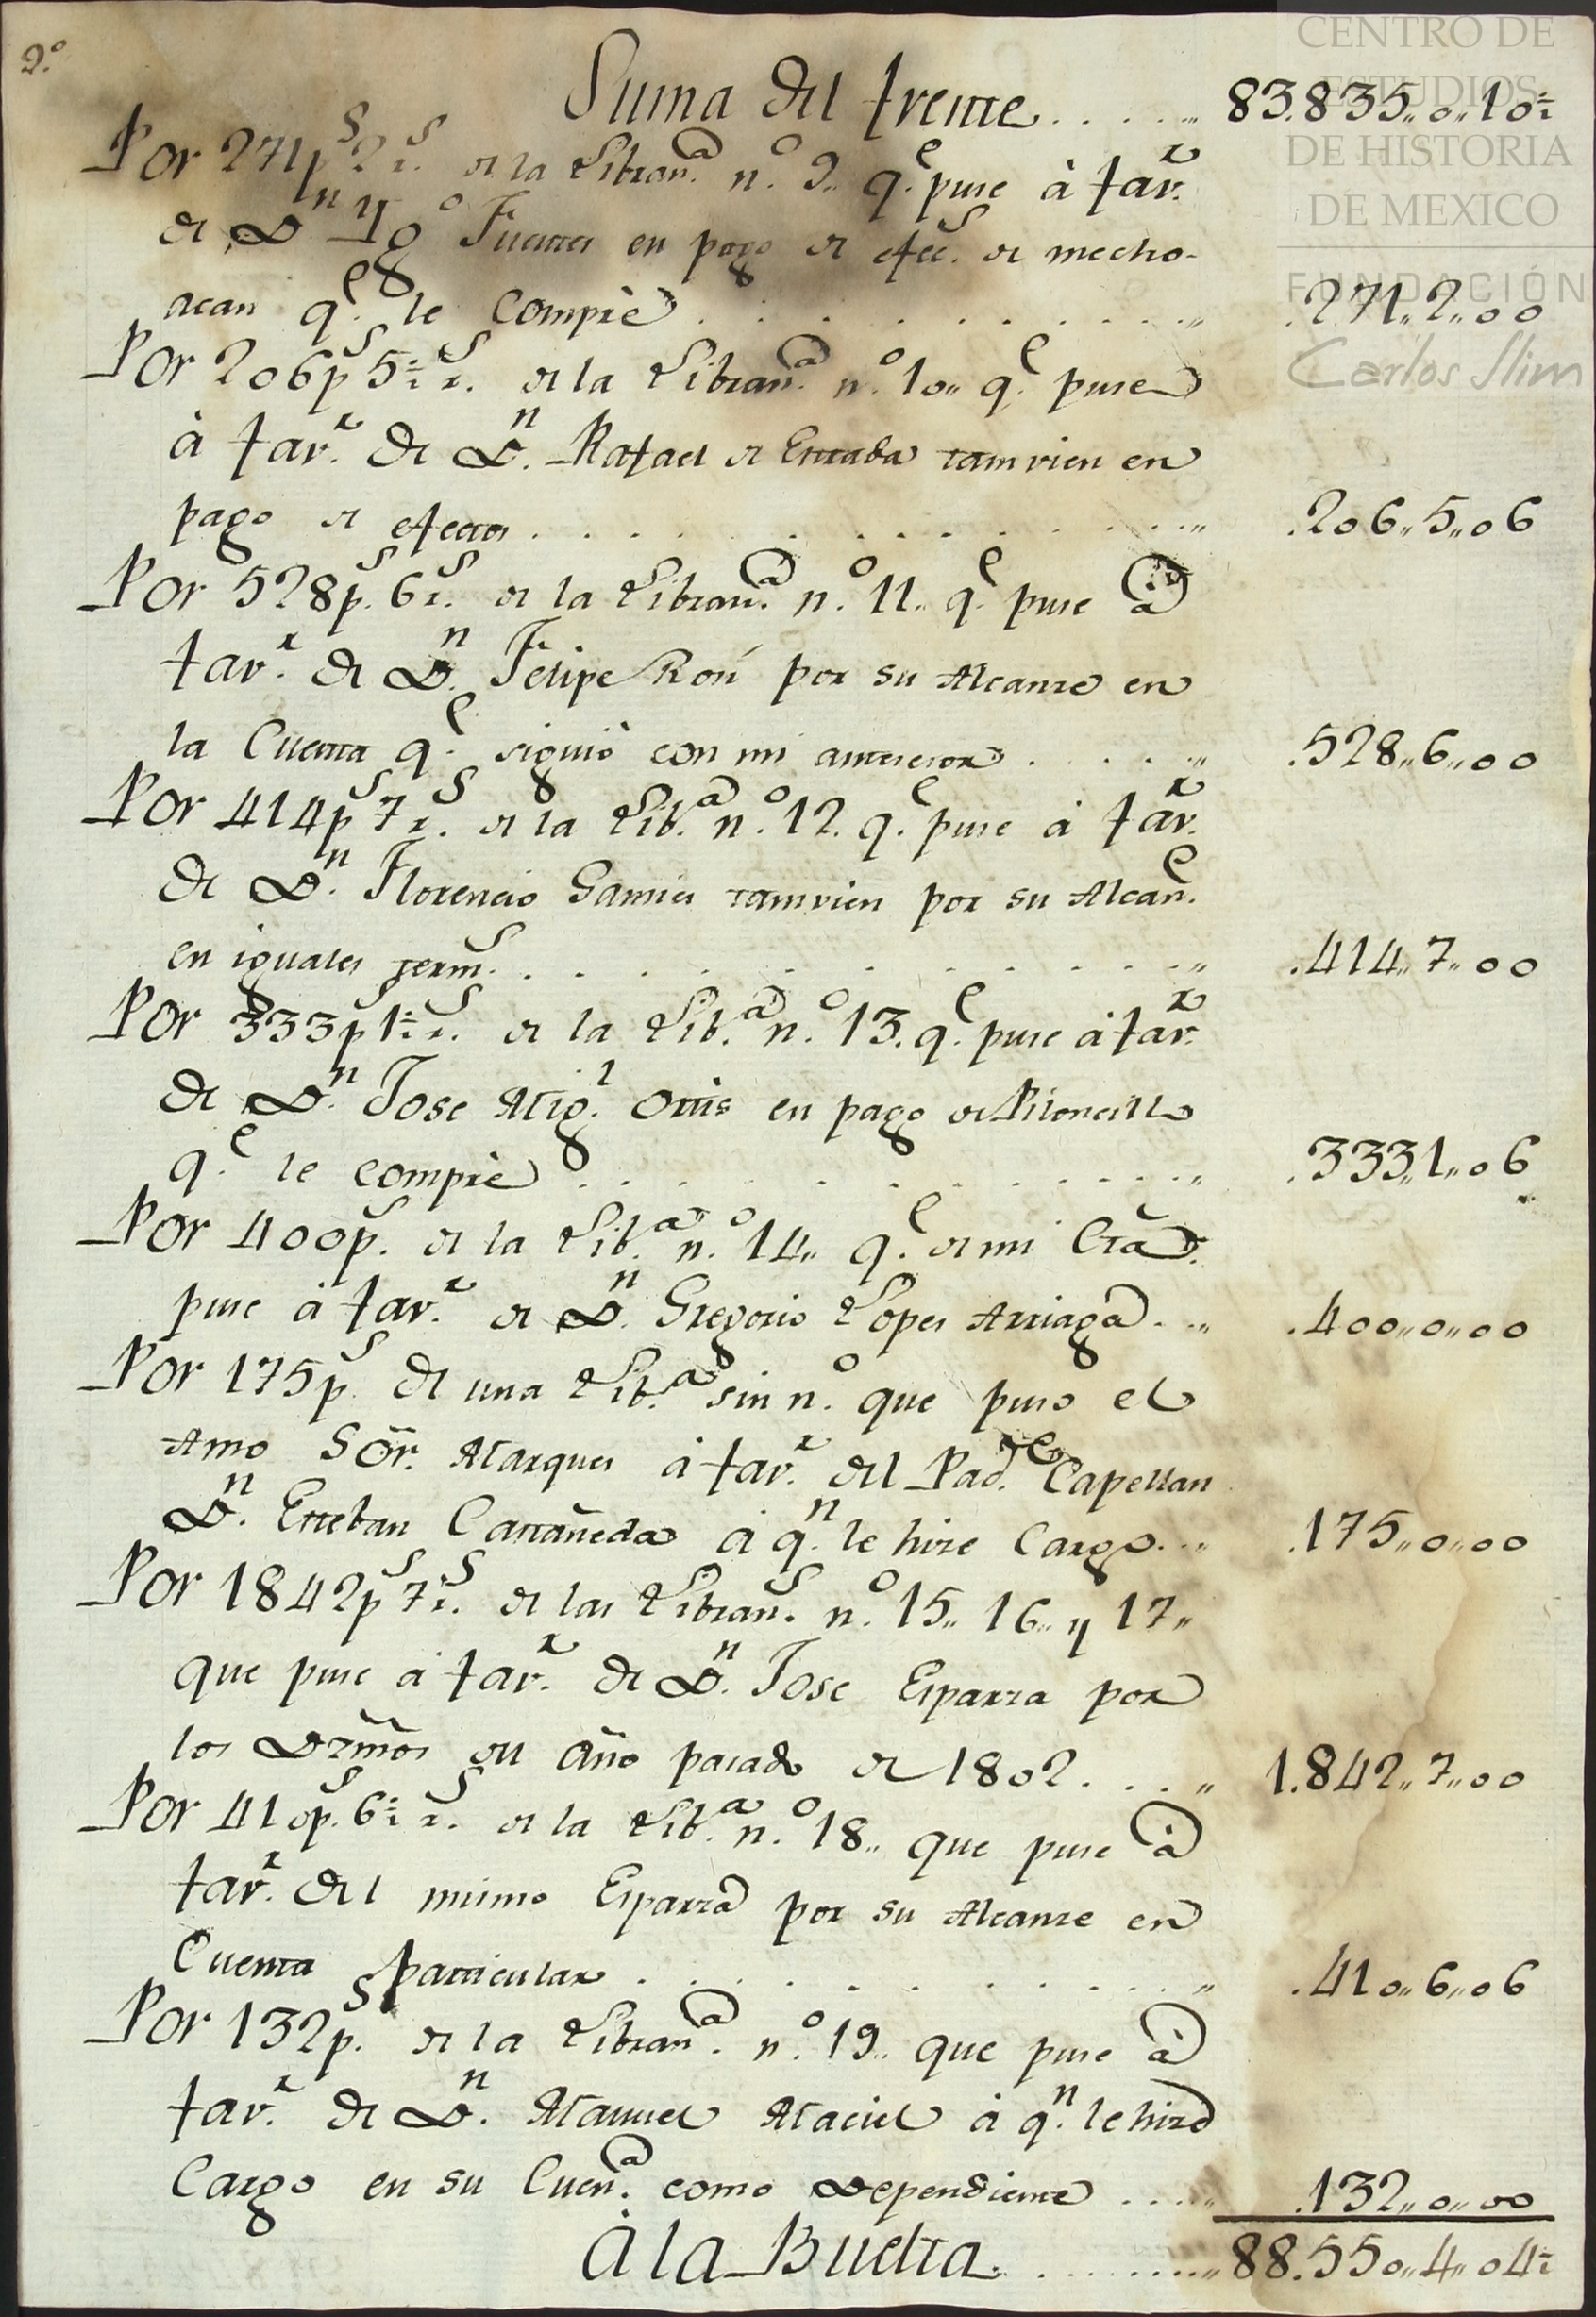 2.º
CENTRO DE
ESTUDIOS
DE HISTORIA
DE MEXICO
FUNDACIÓN
Carlos Slim
Suma del frente..... 83.835,,0,,10½
Por 271p.s 2r.s de la Libran.a n.º 9,, q.e puse à fav.r
de D.n Ygº Fuentes en pago de efec.s de mecho-
acan q.e le compré .......... .271,,2,,00
Por 206p.s 5½ r.s de la Libran.a n.º 10,, q.e puse
à fav.r de D.n Rafael de Estrada tamvien en
pago de efectos .......... .206,,5,,06
Por 528p.s 6r.s de la Libran.a n.º 11,, q.e puse à
fav.r de D.n Felipe Roní por su Alcanze en
la Cuenta q.e siguió con mi antecesor ..... .528,,6,,00
Por 414p.s 7r.s de la Lib.a n.º 12. q.e puse à fav.r
de D.n Florencio Gamiz tamvien por su Alcan.e
en iguales term.s .......... .414,,7,,00
Por 333p.s 1½ r.s de la Lib.a n.º 13. q.e puse à fav.r
de D.n Jose Mig.l Ortis en pago de Piloncillo
q.e le compré .......... .333,,1,,06
Por 400p.s de la Lib.a n.º 14,, q.e de mi Ctad.
puse à fav.r de D.n Gregorio Lopes Arriaga... .400,,0,,00
Por 175p.s de una Lib.a sin n.º que puso el
Amo Sõr. Marques à fav.r del Pad.e Capellan
D.n Esteban Castañeda à q.n le hize Cargo... .175,,0,,00
Por 1842p.s 7r.s de las Libran.s n.º 15,, 16,, y 17,,
que puse à fav.r de D.n Jose Esparza por
los Dzm̃os del año pasado de 1802.... 1.842,,7,,00
Por 410p.s 6½ r.s de la Lib.a n.º 18,, que puse à
fav.r del mismo Esparza por su Alcanze en
Cuenta particular .......... .410,,6,,06
Por 132p.s de la Libran.a n.º 19,, que puse à
fav.r de D.n Manuel Maciel à q.n le hize
Cargo en su Cuen.a como Dependiente ..... .132,,0,,00
À la Buelta.......... 88.550,,4,,04½